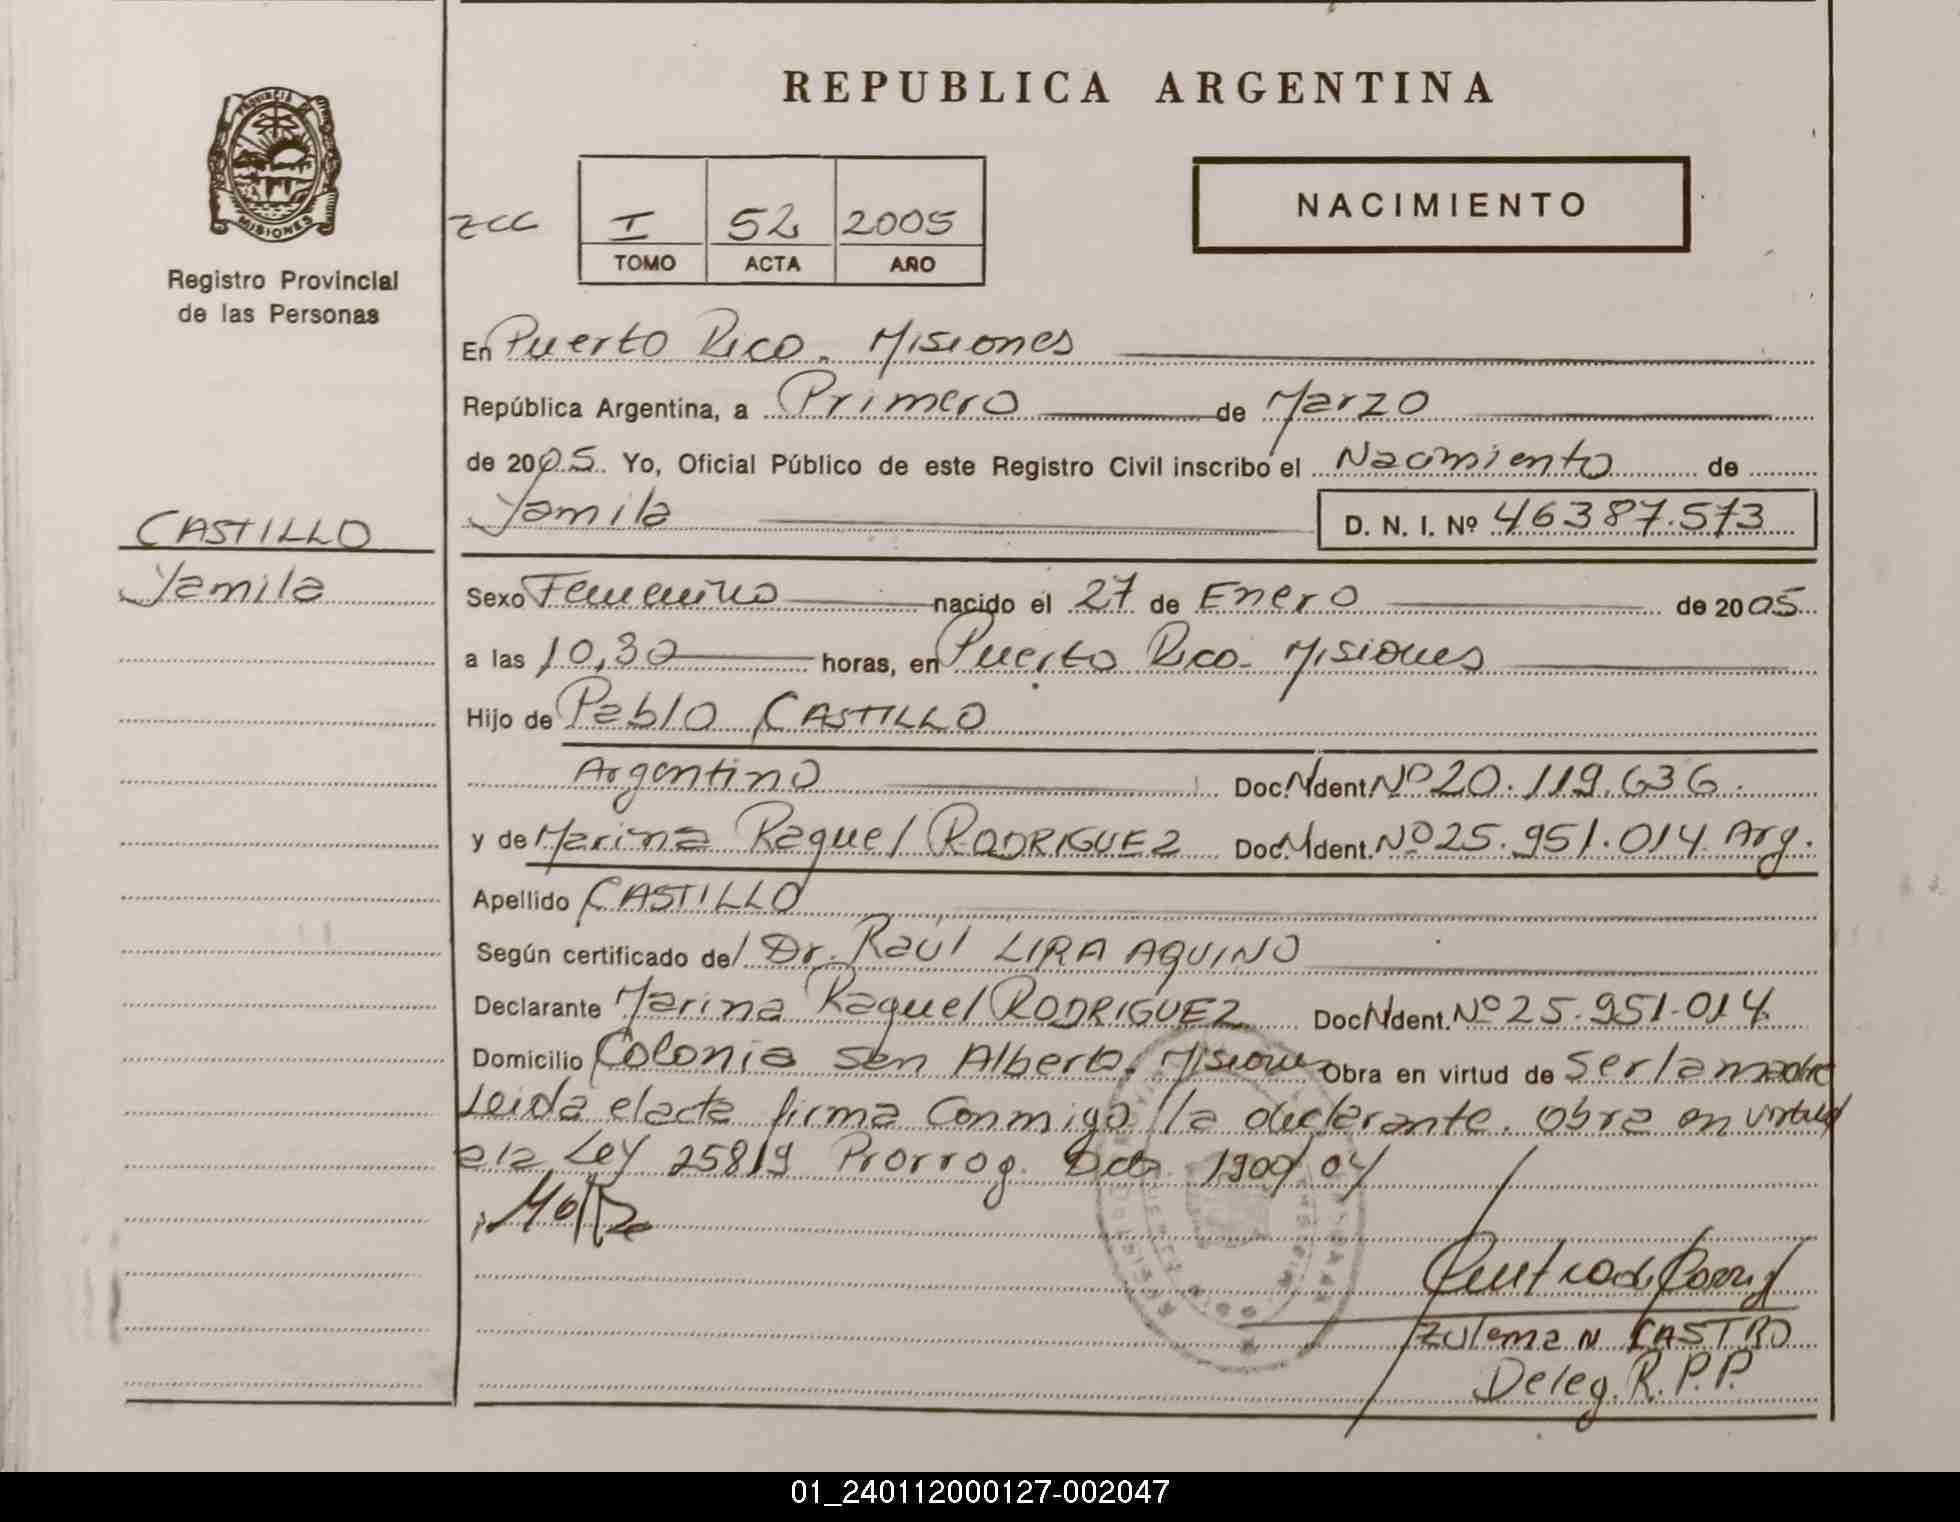 REPUBLICA ARGENTINA
PROVINCIA DE MISIONES
Registro Provincial
de las Personas
NACIMIENTO
I 52 2005
TOMO ACTA AÑO
En Puerto Rico. Misiones
República Argentina, a Primero de Marzo
de 2005 Yo, Oficial Público de este Registro Civil inscribo el Nacimiento de
Yamila D. N. I. Nº 46387.573
CASTILLO
Yamila
Sexo Femenino nacido el 27 de Enero de 2005
a las 10,30 horas, en Puerto Rico - Misiones
Hijo de Pablo CASTILLO
Argentino Doc. N Ident. Nº 20.119.636.
y de Marina Raquel RODRIGUEZ Doc. N Ident. Nº 25.951.014 Arg.
Apellido CASTILLO
Según certificado del Dr. Raúl LIRA AQUINO
Declarante Marina Raquel RODRIGUEZ Doc N Ident. Nº 25.951.014
Domicilio Colonia San Alberto. Misiones Obra en virtud de ser la madre
Leida el acta firma conmigo la declarante. Obra en virtud
a la Ley 25819 Prorrog. 1900/04
ZULema N CASTRO
Deleg. R.P.P.
01_240112000127-002047